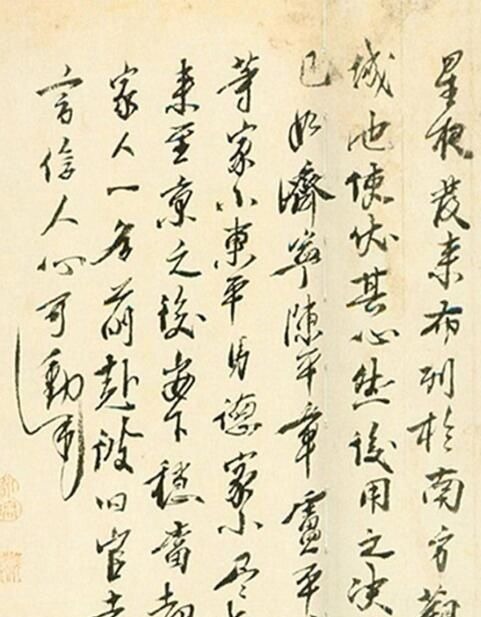 星夜發来布列於南方觀
城池使伏其心然後用之决
已如濟寧陳平章盧平
等家小東平馬德家小尽
来至京之後安下穩當
家人一名前赴彼旧官
言信人心可動